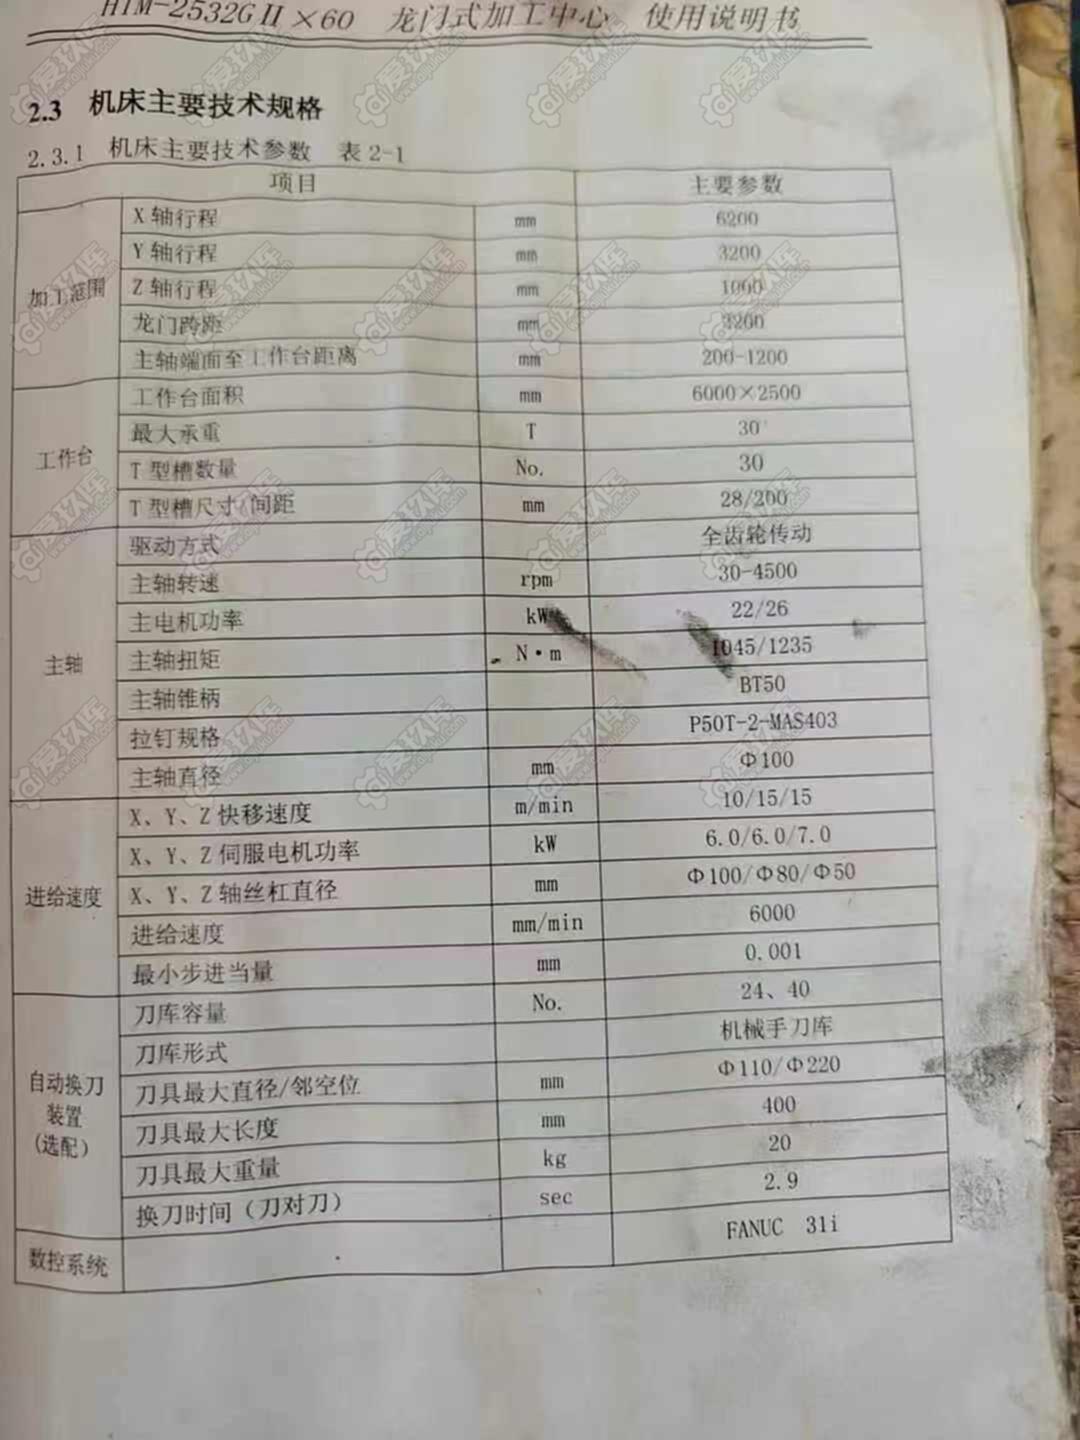 HTM-2532GⅡ×60 龙门式加工中心 使用说明书
2.3 机床主要技术规格
2.3.1 机床主要技术参数 表2-1
项目 主要参数
加工范围
X轴行程 mm 6200
Y轴行程 mm 3200
Z轴行程 mm 1000
龙门跨距 mm 3200
主轴端面至工作台距离 mm 200-1200
工作台
工作台面积 mm 6000×2500
最大承重 T 30
T型槽数量 No. 30
T型槽尺寸/间距 mm 28/200
主轴
驱动方式 全齿轮传动
主轴转速 rpm 30-4500
主电机功率 kW 22/26
主轴扭矩 N·m 1045/1235
主轴锥柄 BT50
拉钉规格 P50T-2-MAS403
主轴直径 mm Φ100
进给速度
X、Y、Z快移速度 m/min 10/15/15
X、Y、Z伺服电机功率 kW 6.0/6.0/7.0
X、Y、Z轴丝杠直径 mm Φ100/Φ80/Φ50
进给速度 mm/min 6000
最小步进当量 mm 0.001
自动换刀
装置
(选配)
刀库容量 No. 24、40
刀库形式 机械手刀库
刀具最大直径/邻空位 mm Φ110/Φ220
刀具最大长度 mm 400
刀具最大重量 kg 20
换刀时间(刀对刀) sec 2.9
数控系统 FANUC 31i